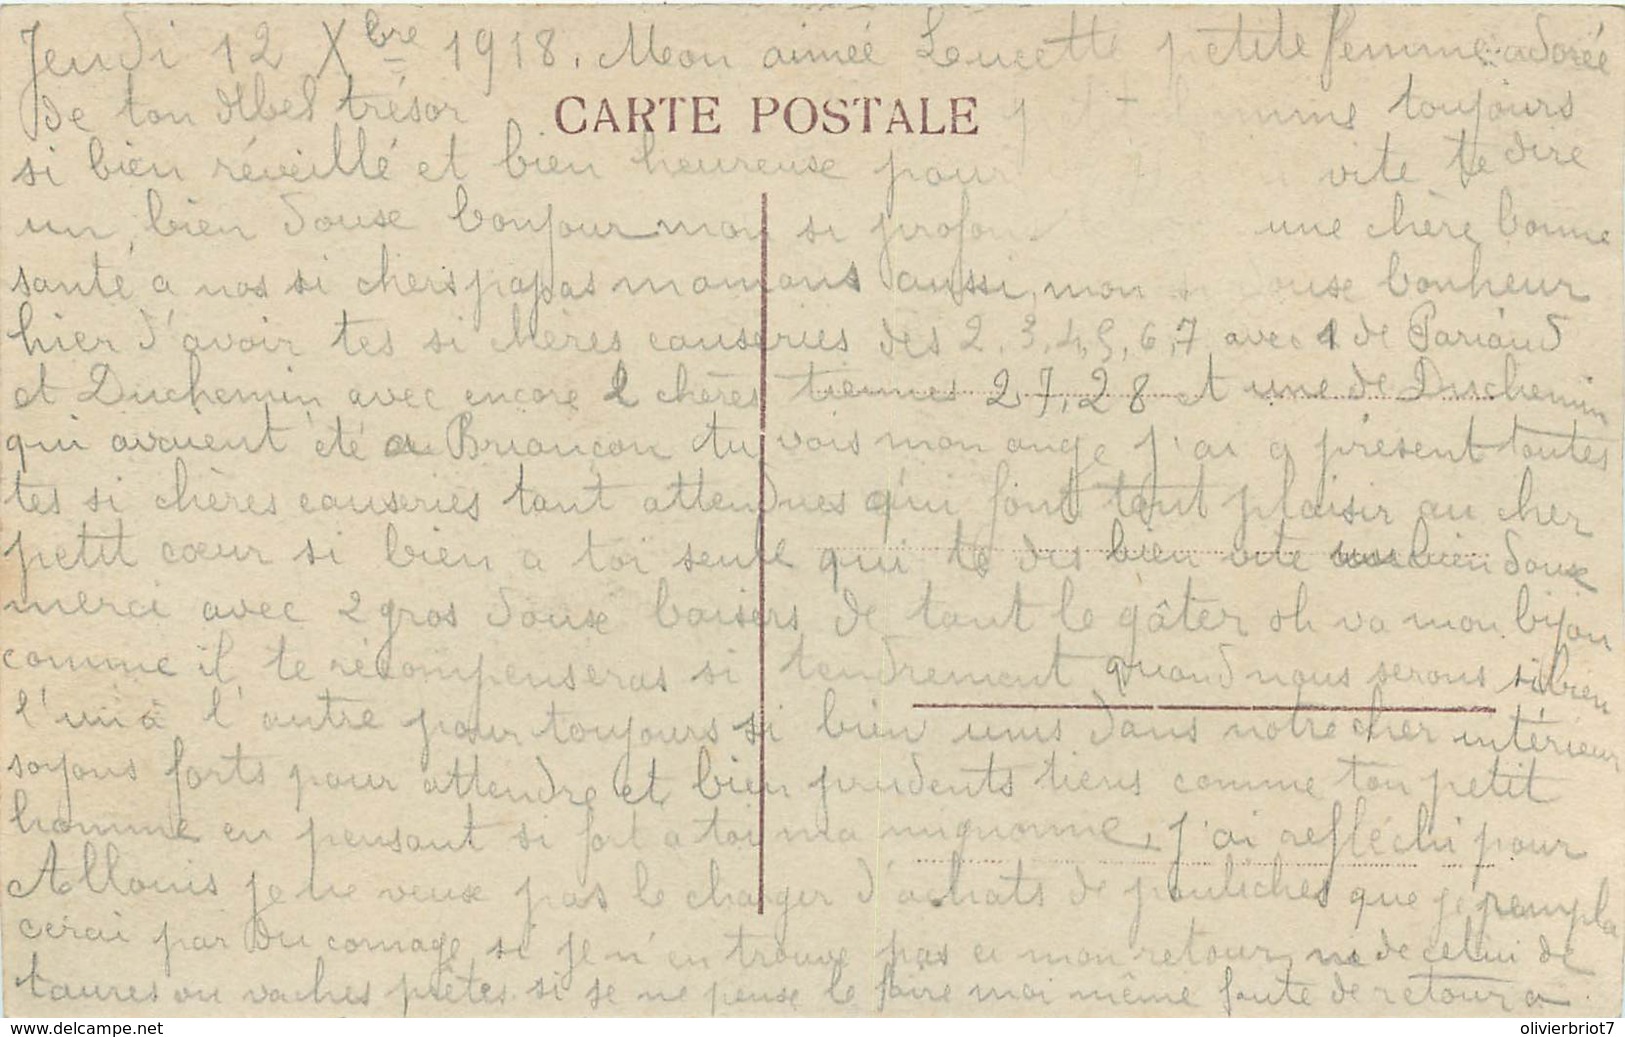 Jeudi 12 Xbre 1918. Mon aimée Lucette petite femme adorée
de ton Abel trésor toujours
CARTE POSTALE
si bien réveillé et bien heureuse pour vite te dire
un bien douse bonjour mon si une chère bonne
santé a nos si chers papas mamans aussi, mon si douse bonheur
hier d'avoir tes si chères causeries des 2, 3, 4, 5, 6, 7 avec 1 de Pariaud
et Duchemin avec encore 2 chères tiennes 27, 28 et une de Duschemin
qui avaient été a Briançon tu vois mon ange j'ai a présent toutes
tes si chères causeries tant attendues qui font tant plaisir au cher
petit cœur si bien a toi seule qui te dis bien vite un bien doux
merci avec 2 gros douse baisers de tant le gâter oh va mon bijou
comme il te recompenseras si tendrement quand nous serons si bien
l'un à l'autre pour toujours si bien unis dans notre cher intérieur
soyons forts pour attendre et bien prudents tiens comme ton petit
homme en pensant si fort a toi ma mignonne, j'ai refléchi pour
Allouis je ne veux pas le charger d'achats de pouliches que je rempla
cerai par du cornage si je n'en trouve pas a mon retour, ni de celui de
taures ou vaches prêtes si je ne peuse le faire moi même faute de retour a
www.delcampe.net
olivierbriot7